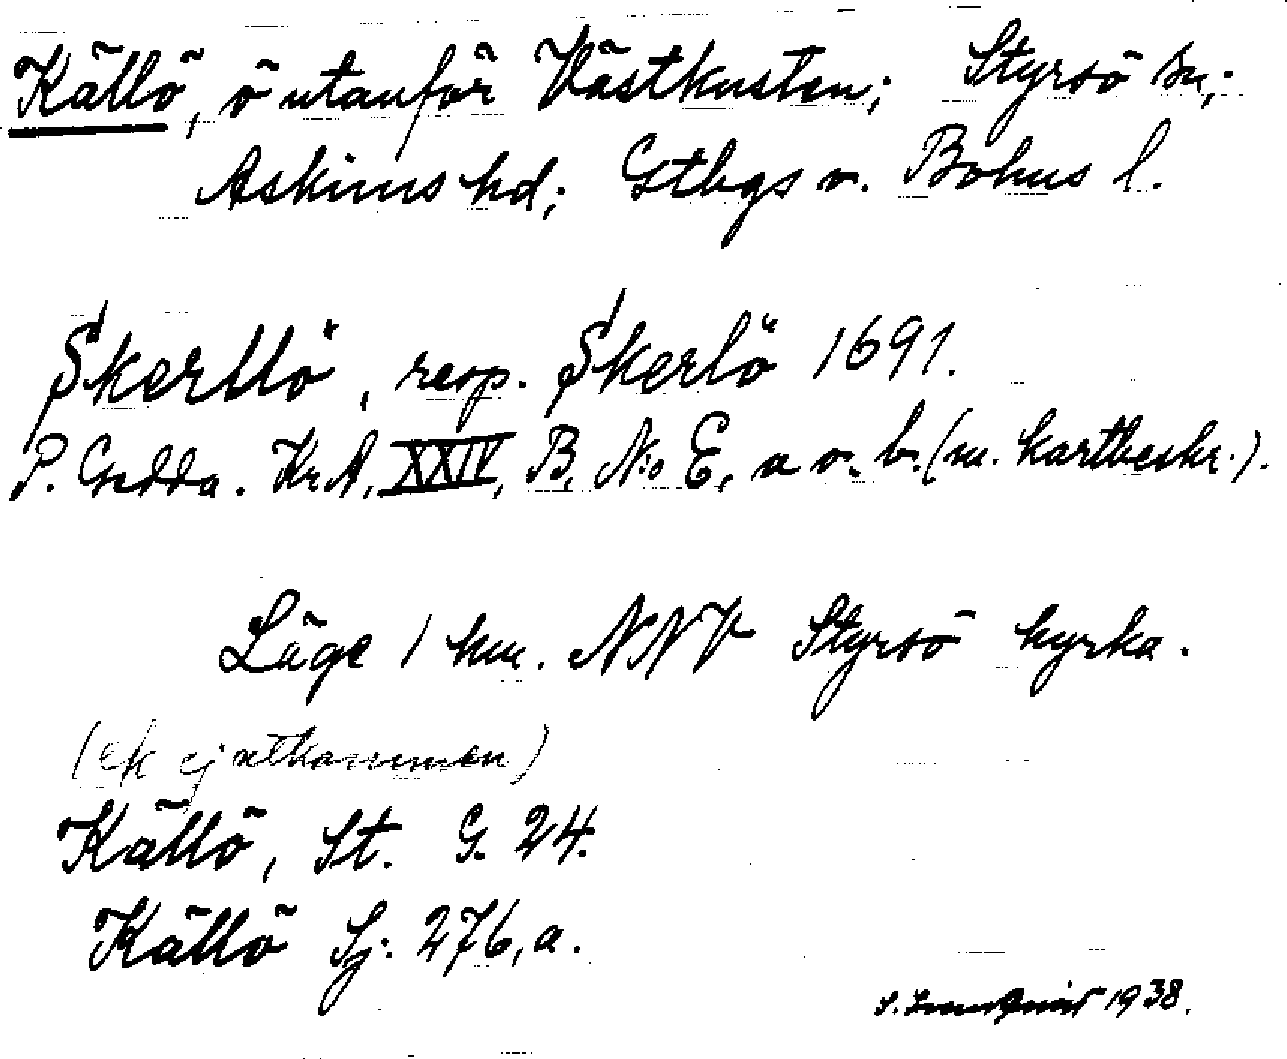 Källö, ö utanför Västkusten; Styrsö sn;
Askims hd; Gtbgs o. Bohus l.
Skerllö, resp. Skerlö 1691.
P. Gedda. Kr.A. XXIV, B. No E, a o. b. (m. kartbeskr.).
Läge 1 km. NNV Styrsö kyrka.
(ek ej utkommen)
Källö, St. G. 24.
Källö Sj: 276,a.
S. 1938.